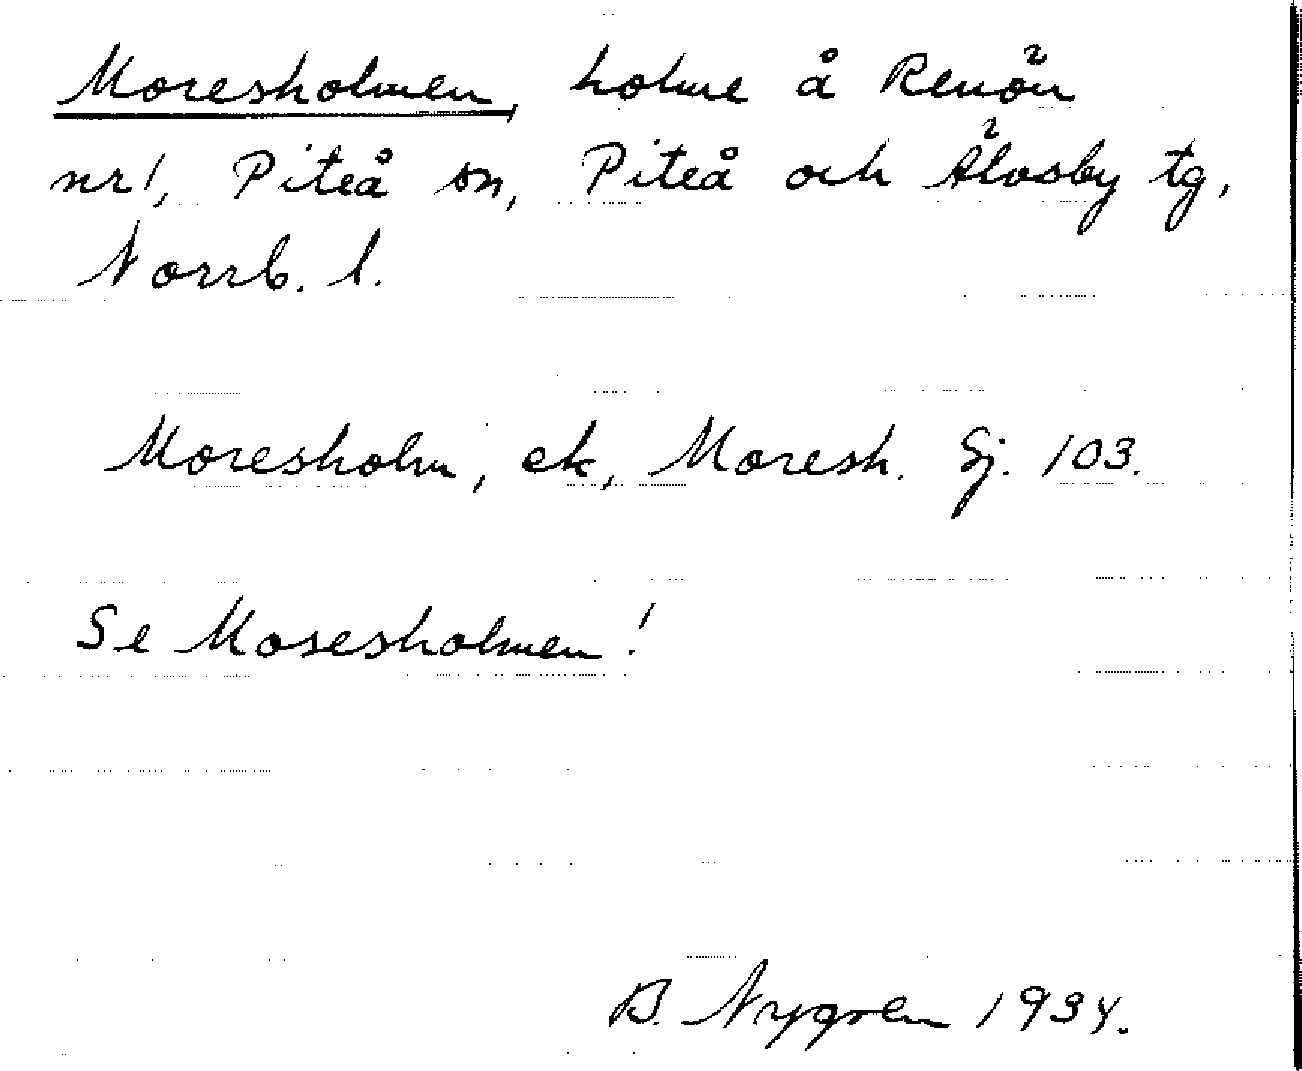 Moresholmen, holme å Renön
nr 1, Piteå sn, Piteå och Älvsby tg,
Norrb. l.
Moresholm, ek, Moresh. Gj. 103.
Se Mosesholmen!
B. Nygren 1934.